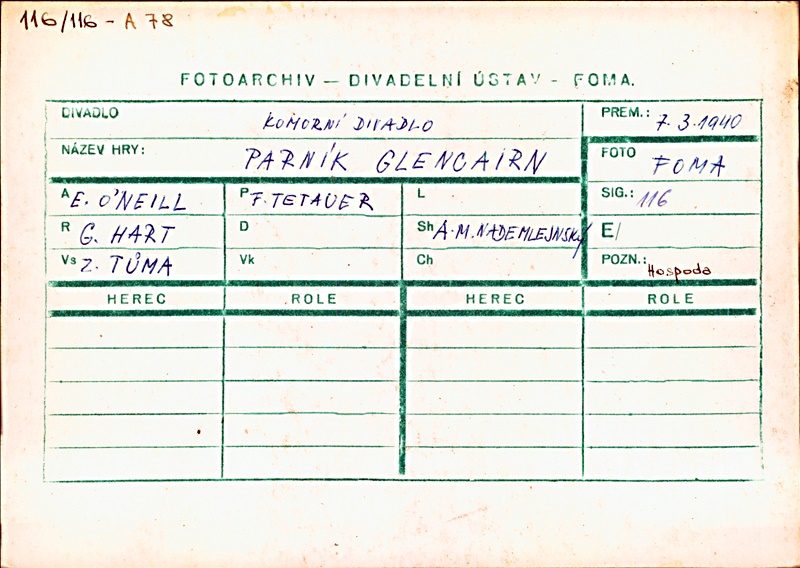 116/116 - A 78
FOTOARCHIV — DIVADELNÍ ÚSTAV - FOMA.
DIVADLO KOMORNÍ DIVADLO PREM.: 7.3.1940
NÁZEV HRY: PARNÍK GLENCAIRN FOTO FOMA
A E. O'NEILL P F. TETAUER L SIG.: 116
R G. HART D Sh A.M. NADEMLEJNSKÝ E/
Vs Z. TŮMA Vk Ch POZN.: Hospoda
HEREC ROLE HEREC ROLE